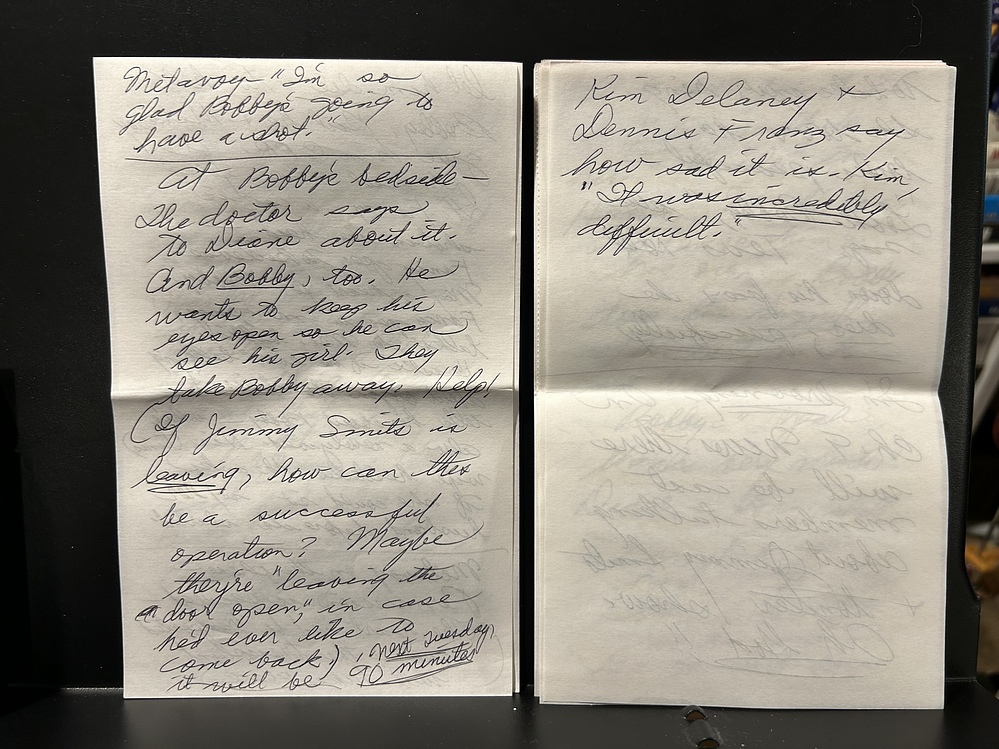 Metavoy "I'm so
glad Bobby's going to
have a shot."
At Bobby's bedside—
The doctor says
to Diane about it.
And Bobby, too. He
wants to keep his
eyes open so he can
see his girl. They
take Bobby away. Help!
(If Jimmy Smits is
leaving, how can this
be a successful
operation? Maybe
they're "leaving the
door open," in case
he'd ever like to
come back.) , next Tuesday,
it will be 90 minutes
Kim Delaney +
Dennis Franz say
how sad it is. Kim
"It was incredibly
difficult."